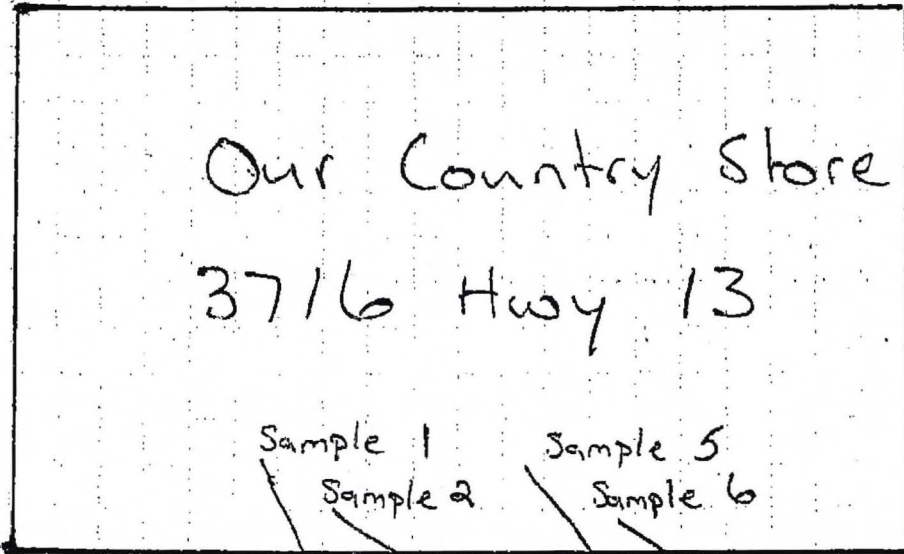 Our Country Store
3716 Hwy 13
Sample 1 Sample 5
Sample 2 Sample 6